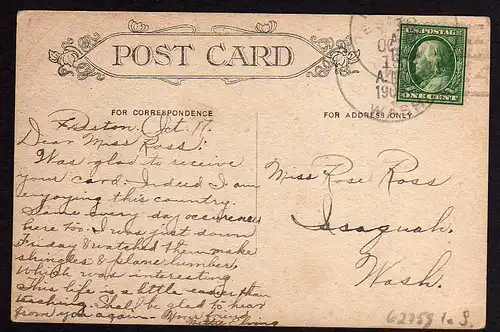 POST CARD
U.S. POSTAGE
ONE CENT
WASH
FOR CORRESPONDENCE
FOR ADDRESS ONLY
Preston, Oct. 17.
Dear Miss Ross:
Was glad to receive
your card. Indeed I am
enjoying this country.
Same every day occurences
here too. I was just down
Friday & watched them make
shingles & plane lumber.
Which was interesting
This life is a little easier than
teaching. Shall be glad to hear
from you again. Your friend
Miss Rose Ross
Issaquah,
Wash.